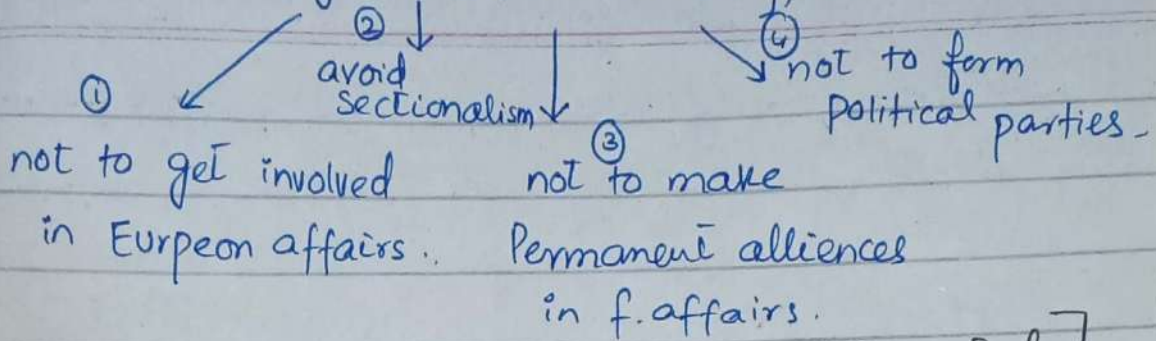 ①
not to get involved
in Eurpeon affairs..
②
avoid
sectionalism
③
not to make
Permanent alliences
in f.affairs.
④
not to form
Political parties-